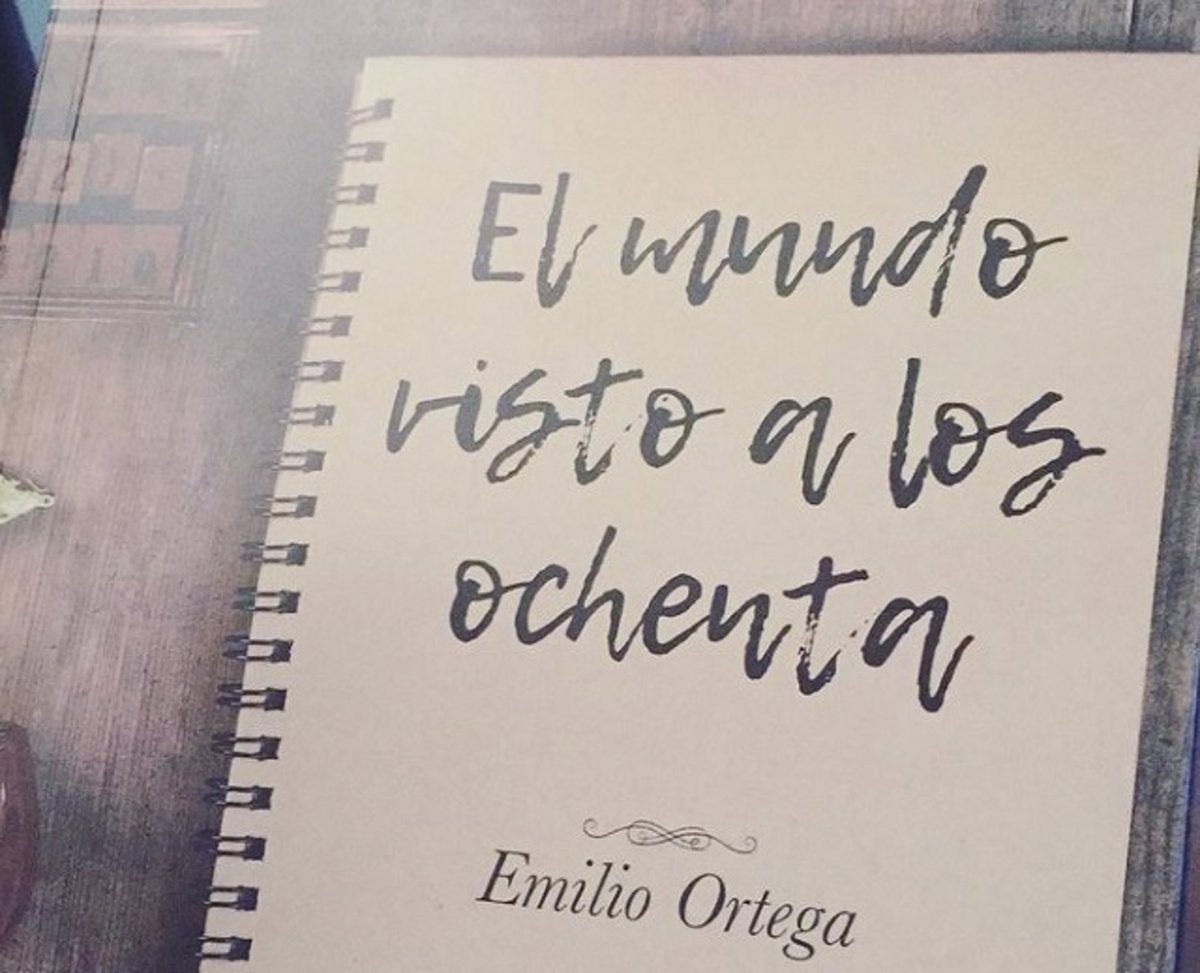 El mundo
visto a los
ochenta
Emilio Ortega